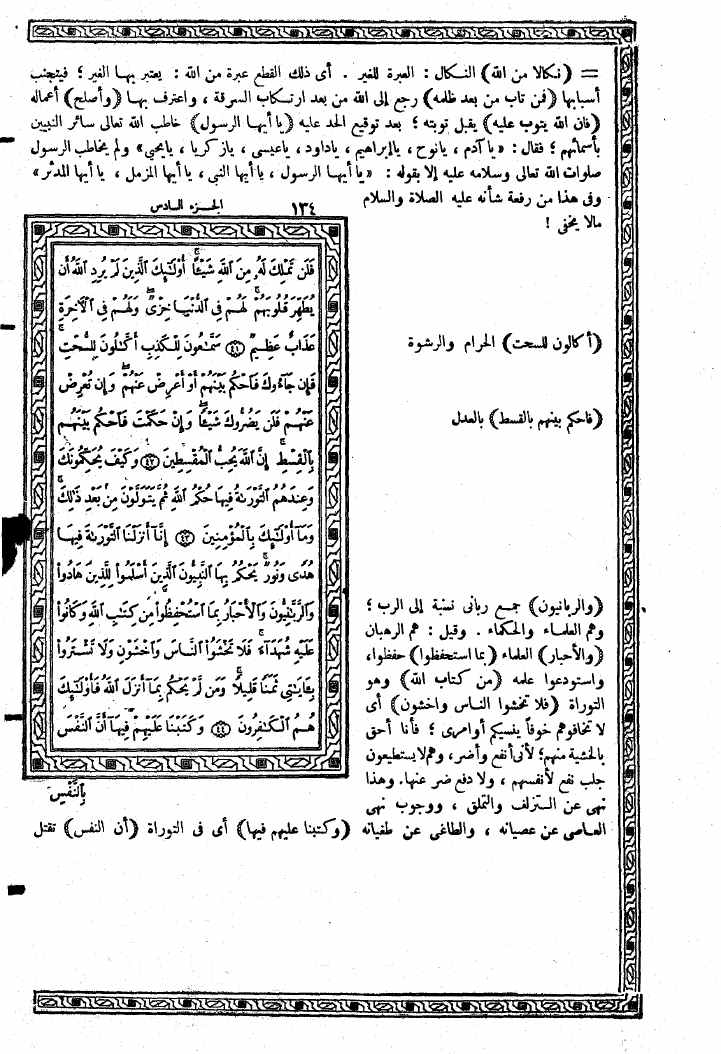 = (نكالا من الله) النكال : العبرة للغير . أى ذلك القطع عبرة من الله : يعتبر بها الغير ؛ فيتجنب
أسبابها (فمن تاب من بعد ظلمه) رجع إلى الله من بعد ارتكاب السرقة ، واعترف بها (وأصلح) أعماله
(فإن الله يتوب عليه) يقبل توبته ؛ بعد توقيع الحد عليه (يا أيها الرسول) خاطب الله تعالى سائر النبيين
بأسمائهم ؛ فقال : «يا آدم ، يانوح ، ياإبراهيم ، ياداود ، ياعيسى ، يازكريا ، يايحيى» ولم يخاطب الرسول
صلوات الله تعالى وسلامه عليه إلا بقوله : «يا أيها الرسول ، يا أيها النبى ، يا أيها المزمل ، يا أيها المدثر»
وفى هذا من رفعة شأنه عليه الصلاة والسلام
مالا يخفى !
(أكالون للسحت) الحرام والرشوة
(فاحكم بينهم بالقسط) بالعدل
(والربانيون) جمع ربانى نسبة إلى الرب ؛
وهم العلماء والحكماء . وقيل : هم الرهبان
(والأحبار) العلماء (بما استحفظوا) حفظوا،
واستودعوا علمه (من كتاب الله) وهو
التوراة (فلا تخشوا الناس واخشون) أى
لا تخافوهم خوفاً ينسيكم أوامرى ؛ فأنا أحق
بالخشية منهم؛ لأنى أنفع وأضر، وهم لا يستطيعون
جلب نفع لأنفسهم ، ولا دفع ضر عنها. وهذا
نهى عن التزلف والتملق ، ووجوب نهى
العاصى عن عصيانه ، والطاغى عن طغيانه (وكتبنا عليهم فيها) أى فى التوراة (أن النفس) تقتل
١٣٤ الجزء السادس
فَلَن تَمْلِكَ لَهُۥ مِنَ ٱللَّهِ شَيْـًٔا أُو۟لَٰٓئِكَ ٱلَّذِينَ لَمْ يُرِدِ ٱللَّهُ أَن
يُطَهِّرَ قُلُوبَهُمْ لَهُمْ فِى ٱلدُّنْيَا خِزْىٌ وَلَهُمْ فِى ٱلْأٓخِرَةِ
عَذَابٌ عَظِيمٌ ﴿٤١﴾ سَمَّٰعُونَ لِلْكَذِبِ أَكَّٰلُونَ لِلسُّحْتِ
فَإِن جَآءُوكَ فَٱحْكُم بَيْنَهُمْ أَوْ أَعْرِضْ عَنْهُمْ وَإِن تُعْرِضْ
عَنْهُمْ فَلَن يَضُرُّوكَ شَيْـًٔا وَإِنْ حَكَمْتَ فَٱحْكُم بَيْنَهُم
بِٱلْقِسْطِ إِنَّ ٱللَّهَ يُحِبُّ ٱلْمُقْسِطِينَ ﴿٤٢﴾ وَكَيْفَ يُحَكِّمُونَكَ
وَعِندَهُمُ ٱلتَّوْرَىٰةُ فِيهَا حُكْمُ ٱللَّهِ ثُمَّ يَتَوَلَّوْنَ مِنۢ بَعْدِ ذَٰلِكَ
وَمَآ أُو۟لَٰٓئِكَ بِٱلْمُؤْمِنِينَ ﴿٤٣﴾ إِنَّآ أَنزَلْنَا ٱلتَّوْرَىٰةَ فِيهَا
هُدًى وَنُورٌ يَحْكُمُ بِهَا ٱلنَّبِيُّونَ ٱلَّذِينَ أَسْلَمُوا۟ لِلَّذِينَ هَادُوا۟
وَٱلرَّبَّٰنِيُّونَ وَٱلْأَحْبَارُ بِمَا ٱسْتُحْفِظُوا۟ مِن كِتَٰبِ ٱللَّهِ وَكَانُوا۟
عَلَيْهِ شُهَدَآءَ فَلَا تَخْشَوُا۟ ٱلنَّاسَ وَٱخْشَوْنِ وَلَا تَشْتَرُوا۟
بِـَٔايَٰتِى ثَمَنًا قَلِيلًا وَمَن لَّمْ يَحْكُم بِمَآ أَنزَلَ ٱللَّهُ فَأُو۟لَٰٓئِكَ
هُمُ ٱلْكَٰفِرُونَ ﴿٤٤﴾ وَكَتَبْنَا عَلَيْهِمْ فِيهَآ أَنَّ ٱلنَّفْسَ
بِٱلنَّفْسِ